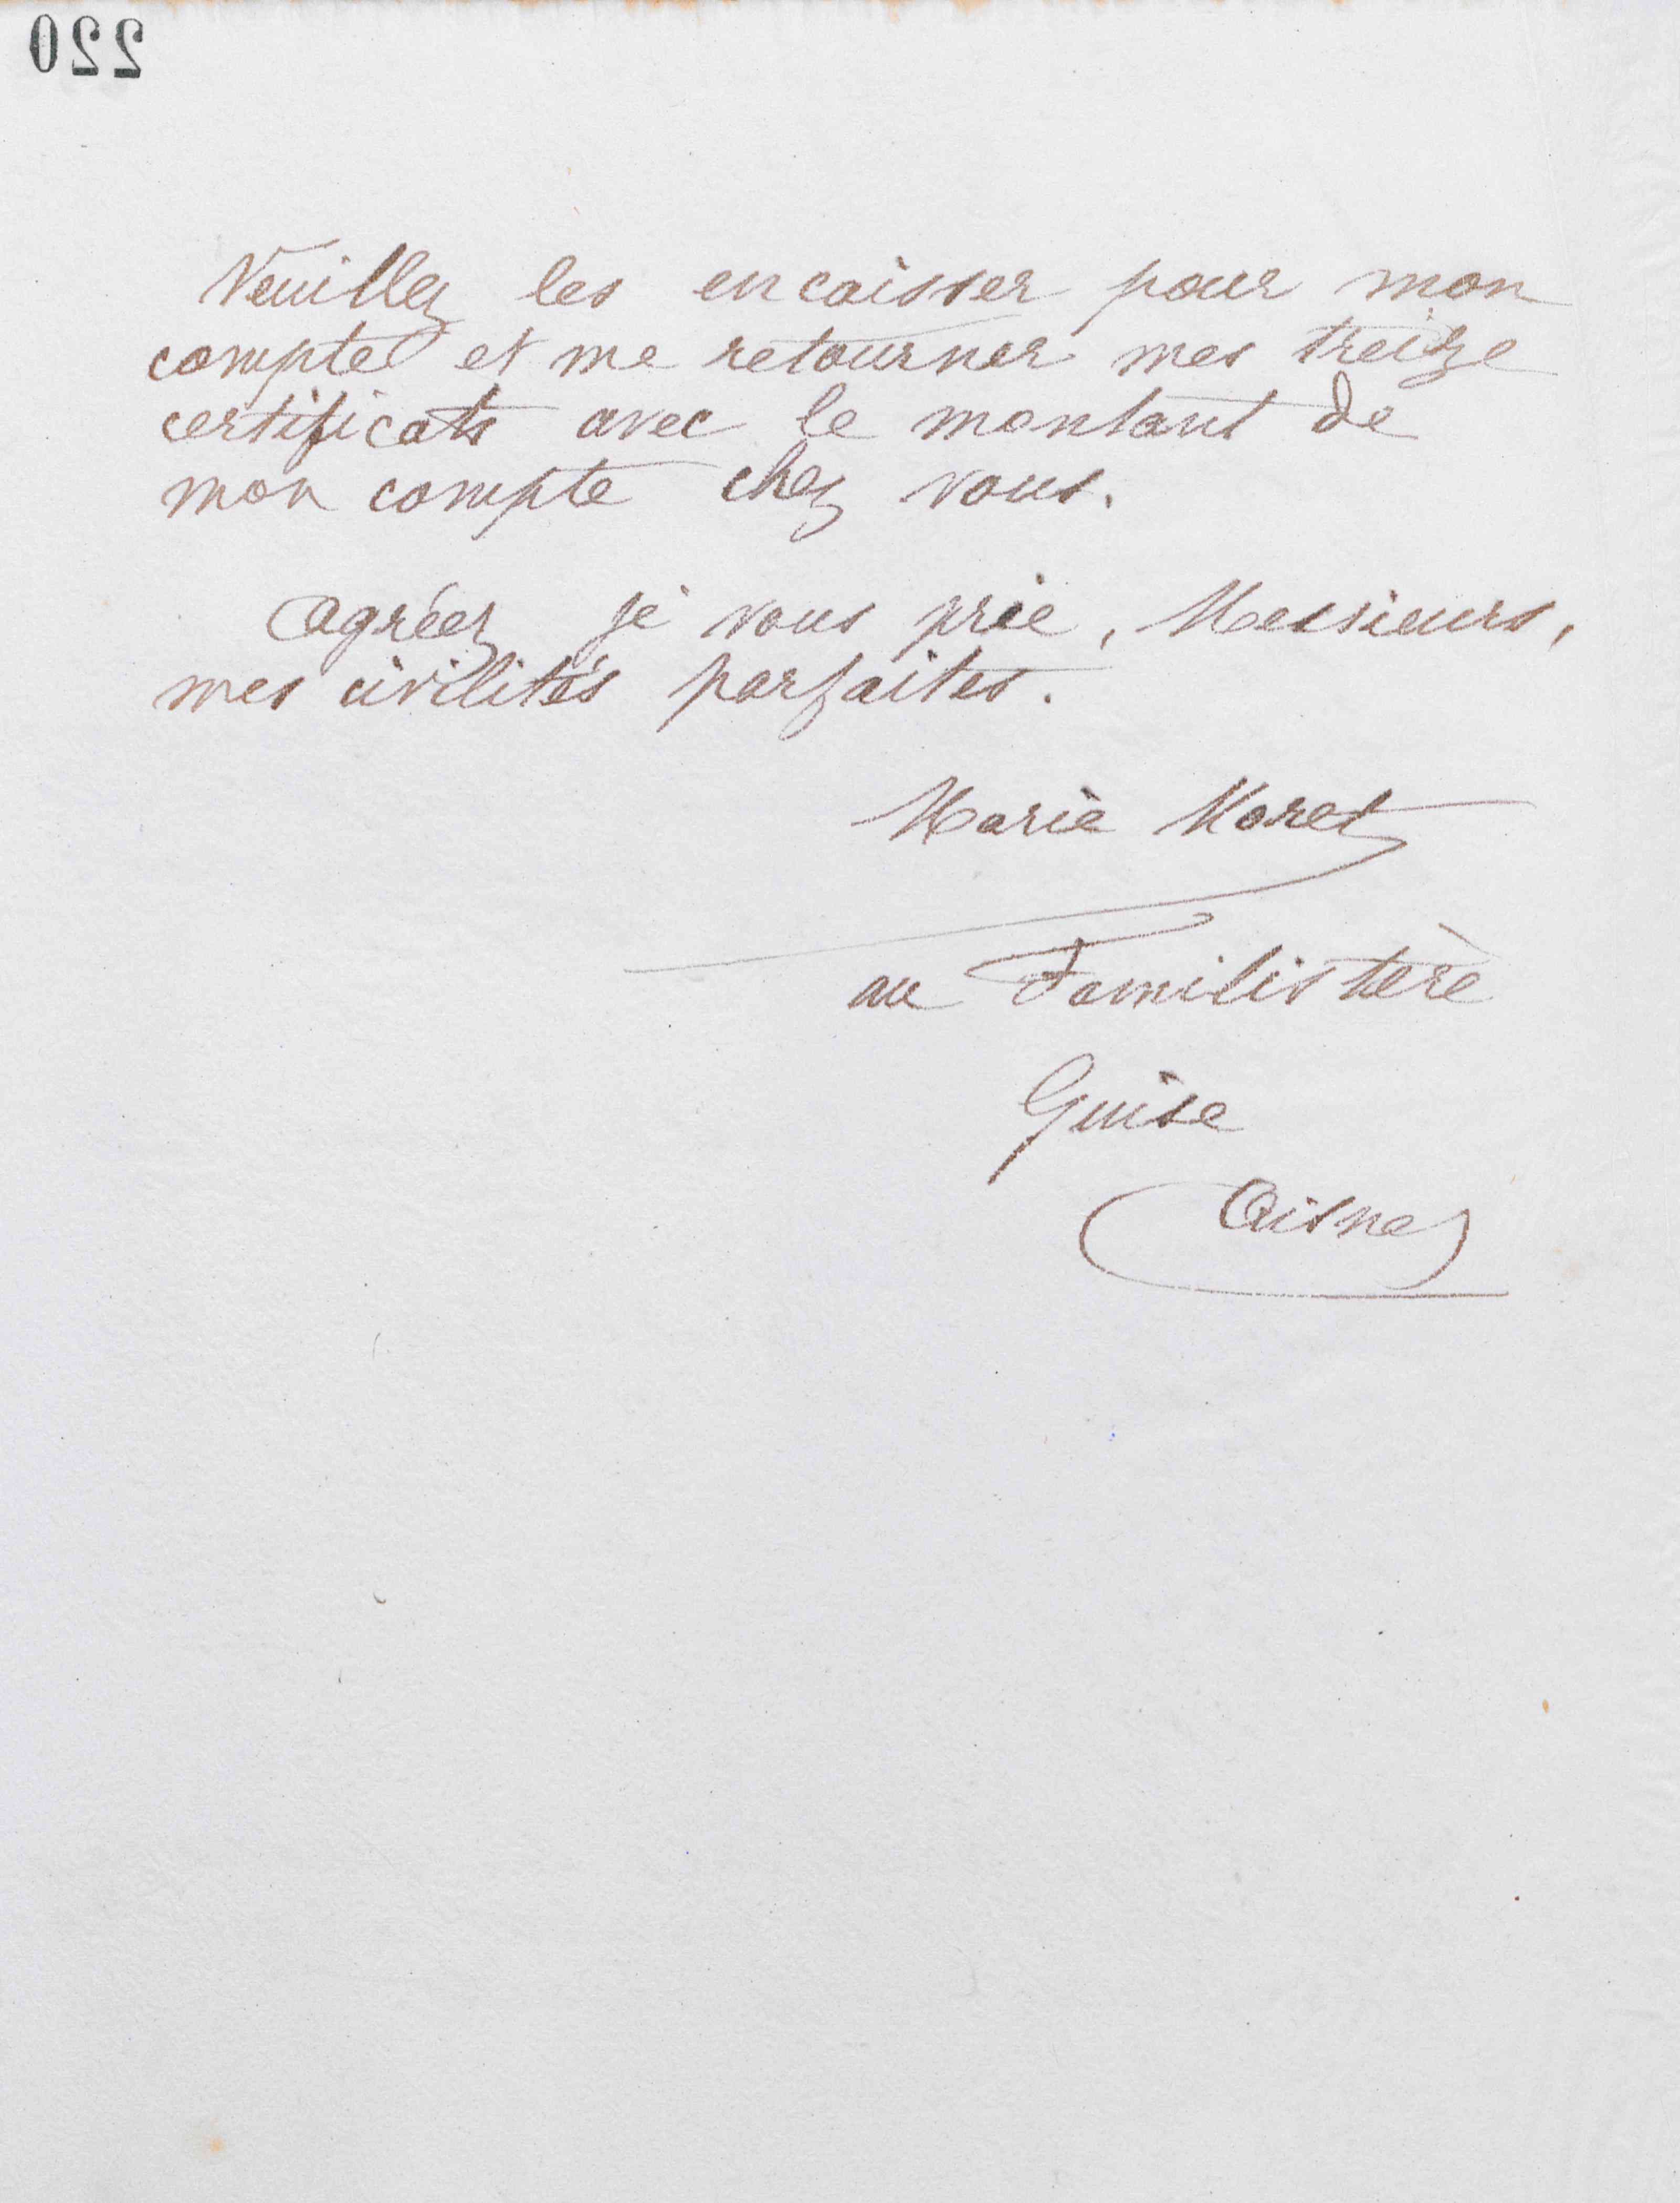 220
Veuillez les encaisser pour mon
compte et me retourner mes treize
certificats avec le montant de
mon compte chez vous.
Agréez je vous prie, Messieurs,
mes civilités parfaites.
Marie Moret
au Familistère
Guise
Aisne